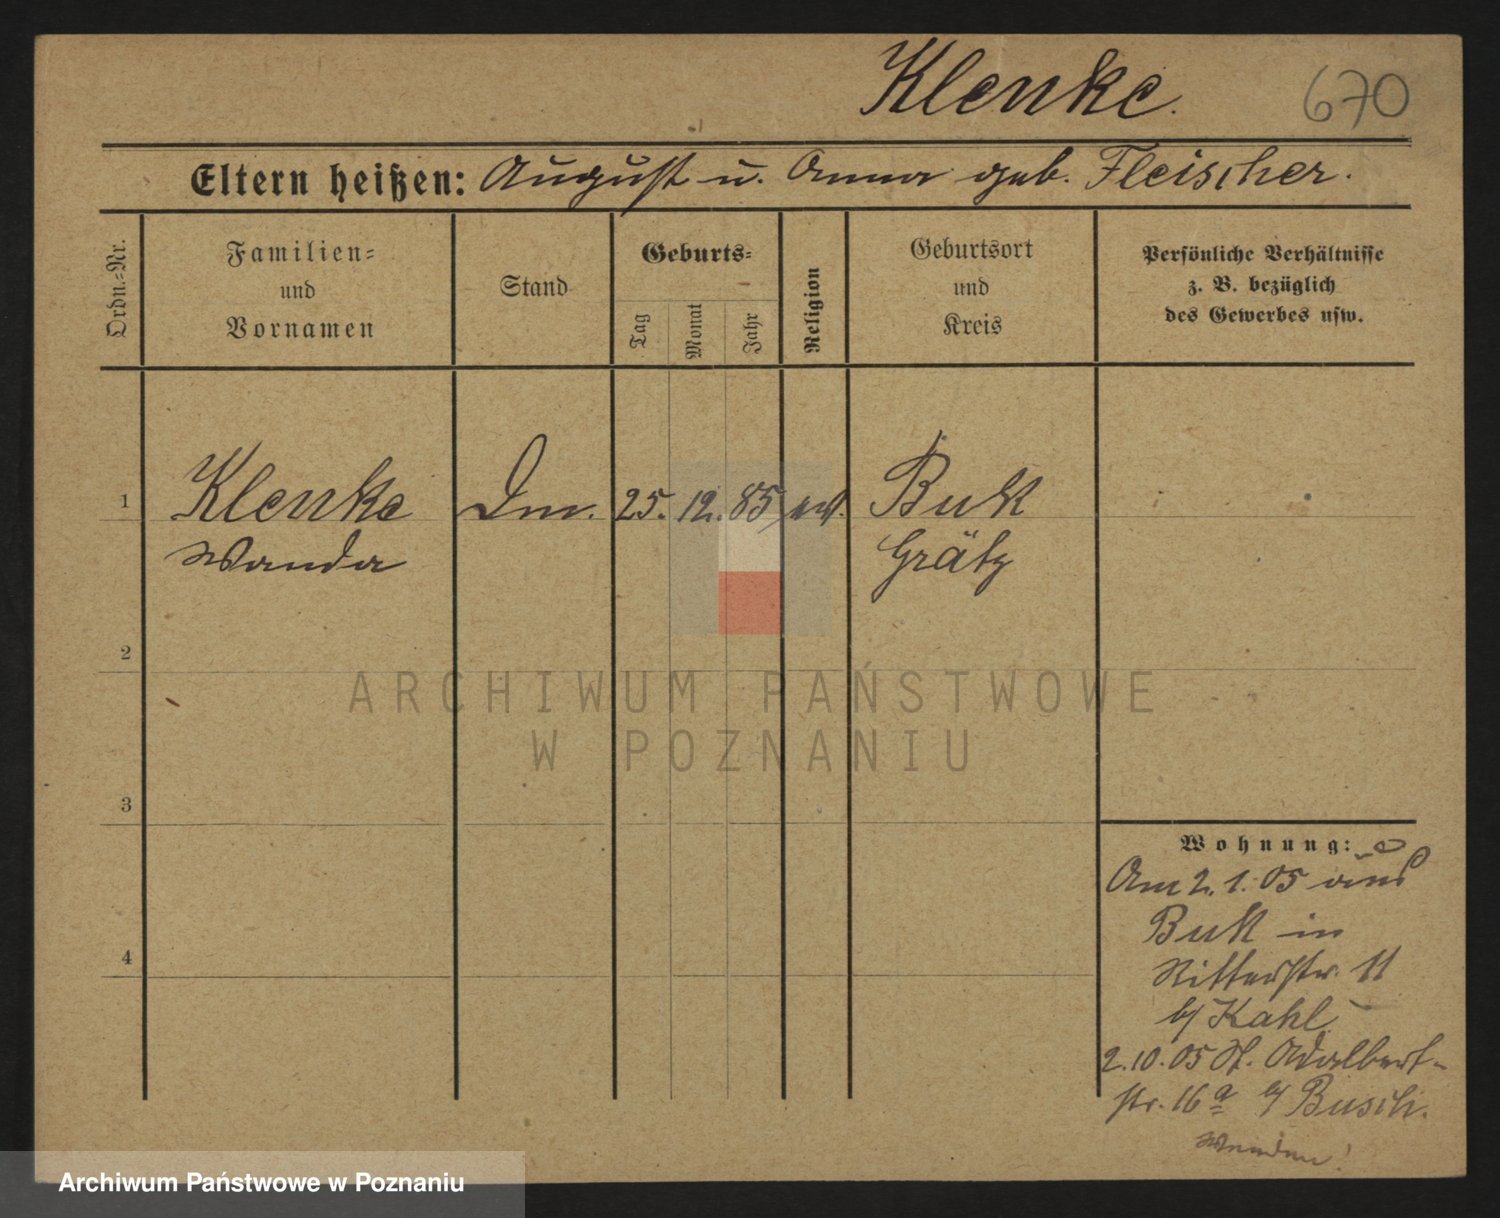 Klenke.
670
Eltern heißen: August u. Anna geb. Fleischer.
Ordn.=Nr.
Familien=
und
Vornamen
Stand
Geburts=
Tag
Monat
Jahr
Religion
Geburtsort
und
Kreis
Persönliche Verhältnisse
z. B. bezüglich
des Gewerbes usw.
1
Klenke 25. 12. 85 ev. Buk
Wanda Grätz
2
ARCHIWUM PAŃSTWOWE
W POZNANIU
3
Wohnung:
Am 2. 1. 05 aus
4
Buk in
Ritterstr. 11
b/ Kahl
2. 10. 05 St. Adalbert-
str. 16a b/ Busch.
Archiwum Państwowe w Poznaniu